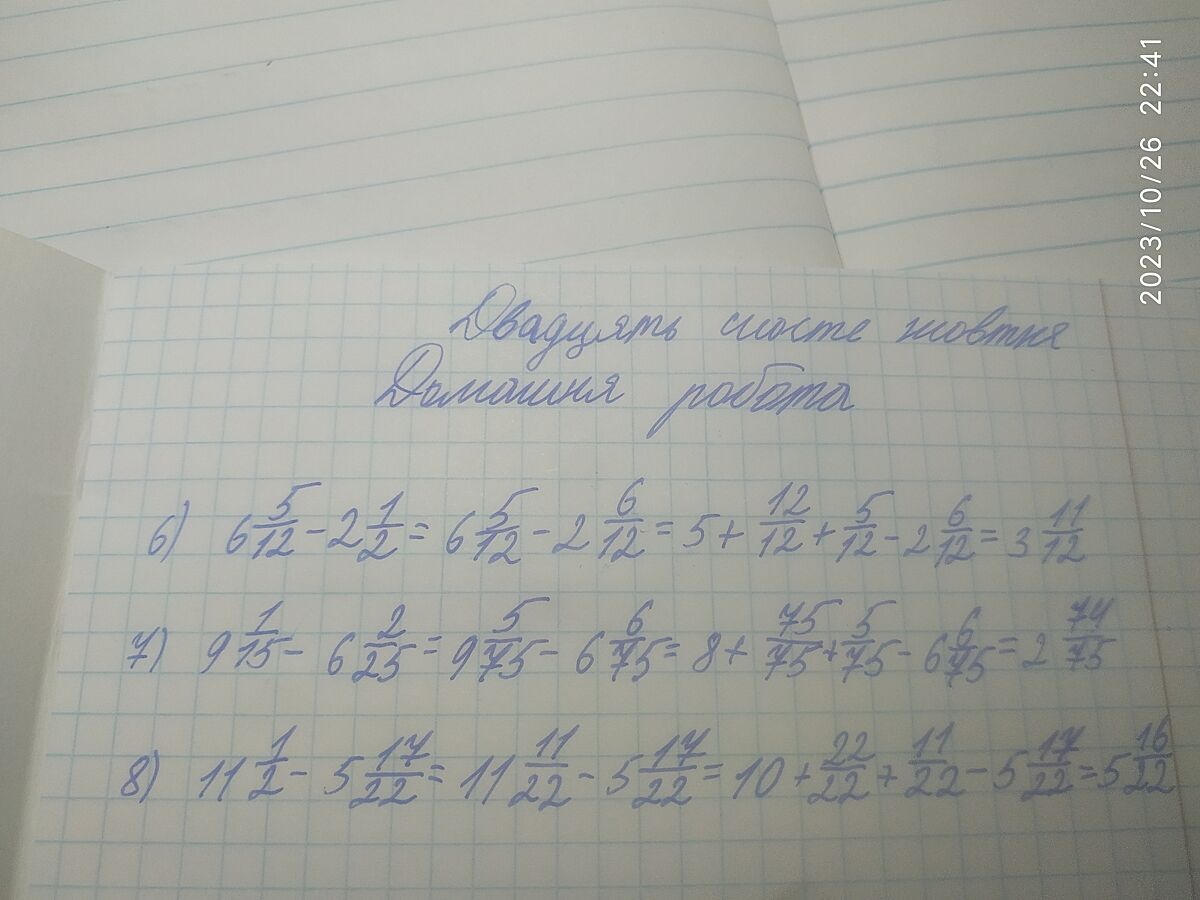 Двадцять шосте жовтня
Домашня робота
6) 6 5/12 - 2 1/2 = 6 5/12 - 2 6/12 = 5 + 12/12 + 5/12 - 2 6/12 = 3 11/12
7) 9 1/15 - 6 2/25 = 9 5/75 - 6 6/75 = 8 + 75/75 + 5/75 - 6 6/75 = 2 74/75
8) 11 1/2 - 5 17/22 = 11 11/22 - 5 17/22 = 10 + 22/22 + 11/22 - 5 17/22 = 5 16/22
2023/10/26 22:41